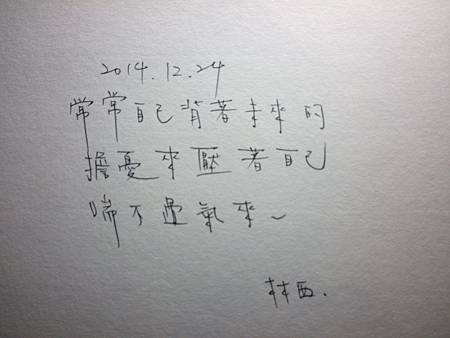 2014.12.24
常常自己背著未來的
擔憂來壓著自己
喘不過氣來~
林西.